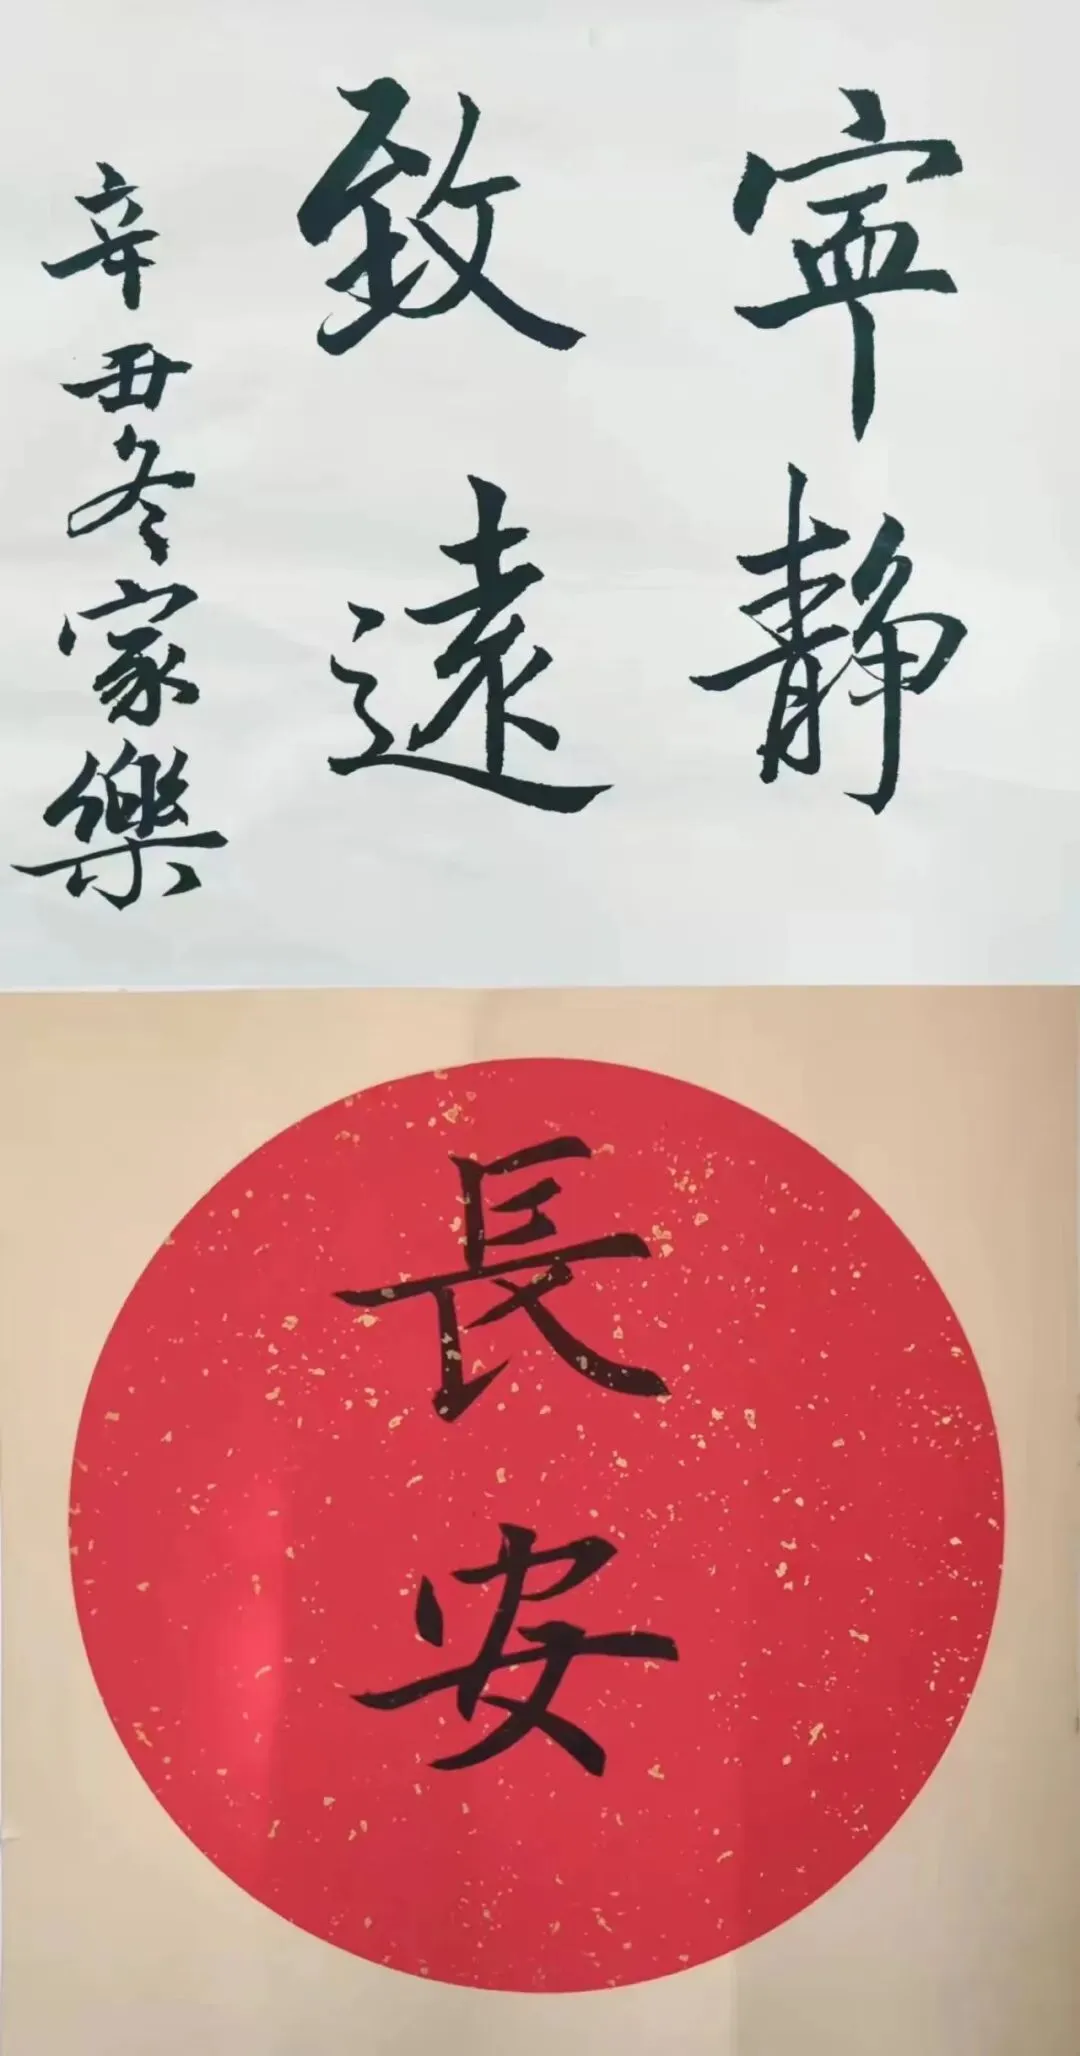 寧静
致遠
辛丑冬家樂
長安